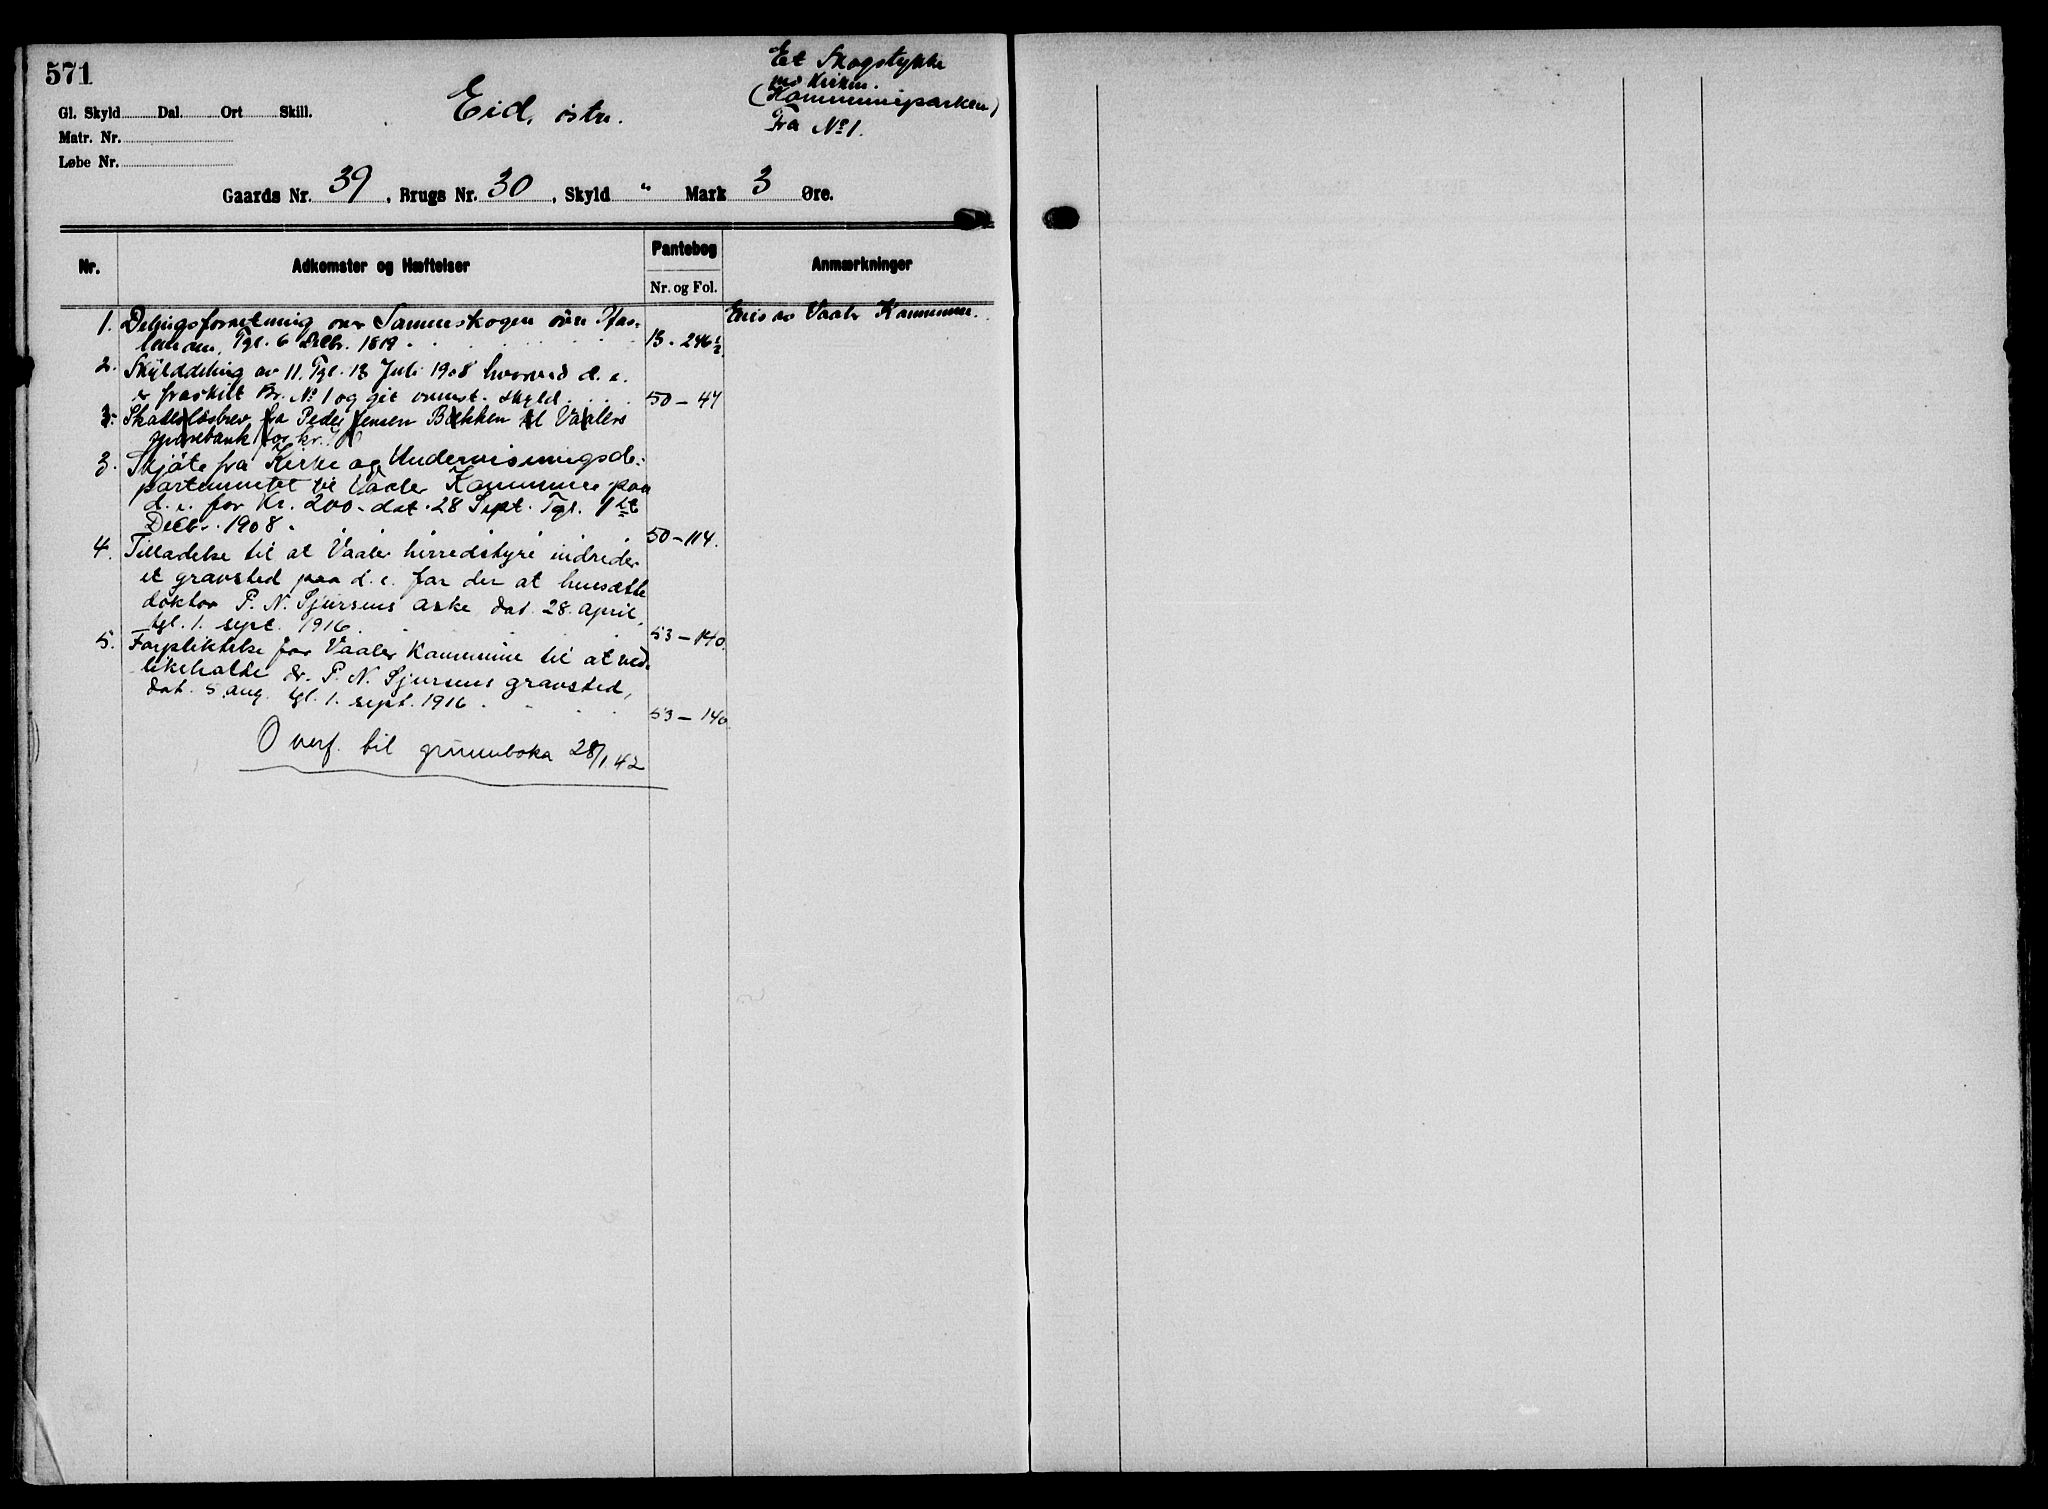 571
Et Skogstykke
ved Kirken.
(Kommuneparken)
Fra No 1.
Eid, østre.
Gl. Skyld Dal. Ort Skill.
Matr. Nr.
Løbe Nr.
Gaards Nr. 39, Brugs Nr. 30, Skyld " Mark 3 Øre.
Nr. Adkomster og Hæftelser Pantebog Anmærkninger
Nr. og Fol.
1. Delingsforretning over Sameskogen
Tgl. 6 Decbr. 1819 B. 246 1/2
Eies av Vaaler Kommune.
2. Skylddeling av 11. Tgl. 13 Juli 1908 hvorved d. e.
er fraskilt Br. No 1 og git ovenst. skyld. 50 - 47
3. Skadesløsbrev fra Peder Jensen Bakken til Vaalers
sparebank for kr.
3. Skjøte fra Kirke og Undervisningsde-
partementet til Vaaler Kommune paa
d. e. for Kr. 200 - dat. 28 Sept. Tgl. 1ste
Decbr. 1908. 50 - 114.
4. Tilladelse til at Vaaler herredstyre indreder
et gravsted paa d. e. for der at hensætte
doktor P. N. Sjursens aske, dat. 28. april,
tgl. 1. sept. 1916 53 - 140.
5. Forpliktelse for Vaaler Kommune til at ved-
likeholde dr. P. N. Sjursens gravsted,
dat. 5 aug. tgl. 1. sept. 1916. 53 - 140.
Overf. til grunnboka 28/1.42